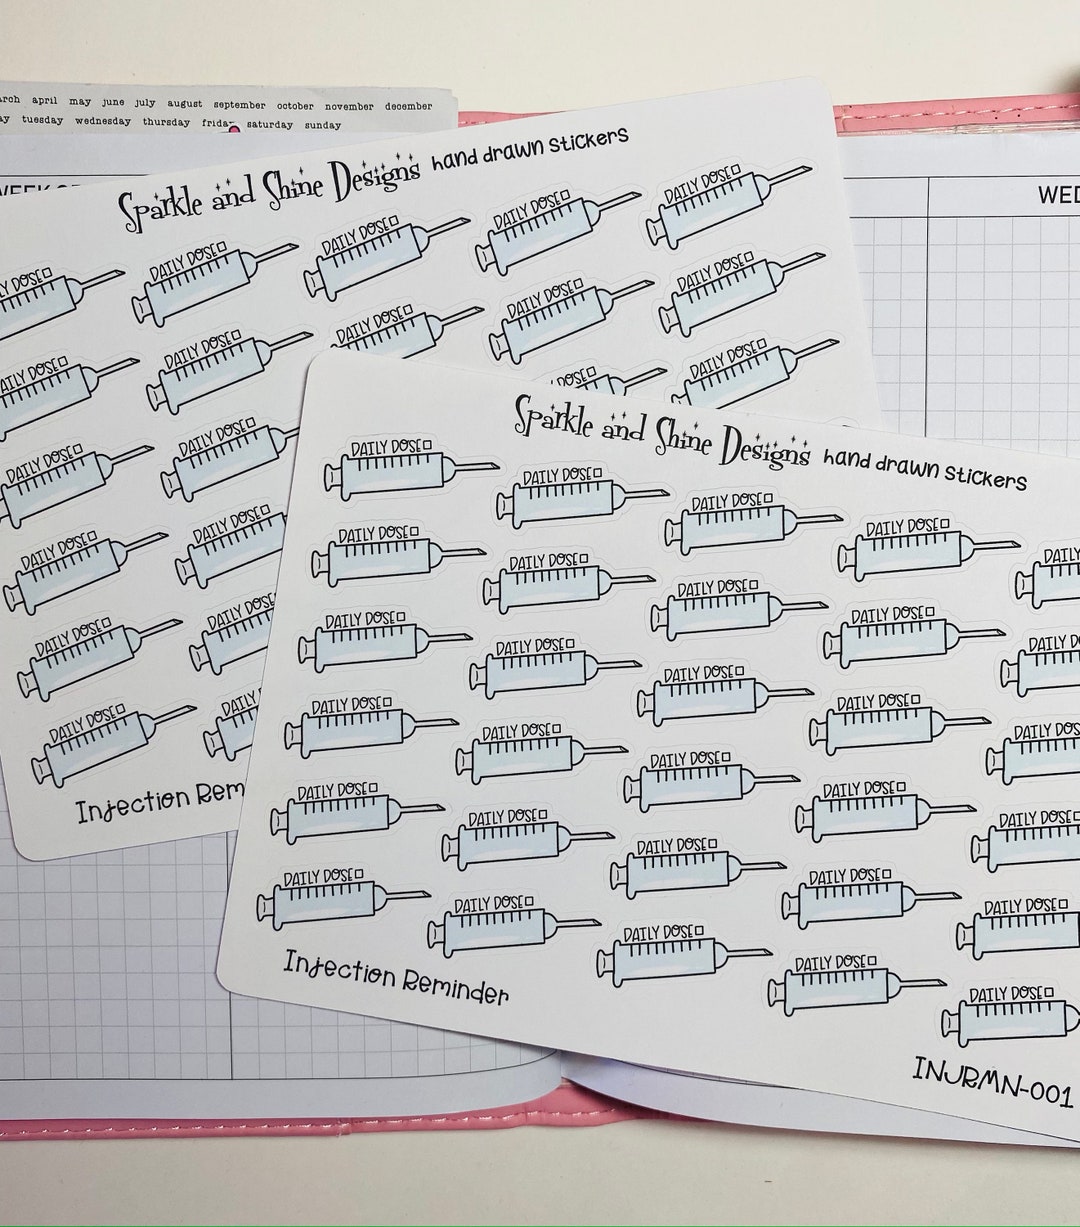 arch april may june july august september october november december
ay tuesday wednesday thursday friday saturday sunday
WED
Sparkle and Shine Designs hand drawn stickers
Y DOSE DAILY DOSE DAILY DOSE DAILY DOSE DAILY DOSE
AILY DOSE DAILY DOSE DAILY DOSE DAILY DOSE DAILY DOSE
DAILY DOSE DAILY DOSE DOSE DAILY DOSE
DAILY DOSE DAILY DOSE
DAILY DOSE DAILY DOSE
DAILY DOSE DAILY
Injection Rem
Sparkle and Shine Designs hand drawn stickers
DAILY DOSE DAILY DOSE DAILY DOSE DAILY DOSE DAILY
DAILY DOSE DAILY DOSE DAILY DOSE DAILY DOSE DAILY D
DAILY DOSE DAILY DOSE DAILY DOSE DAILY DOSE DAILY DOS
DAILY DOSE DAILY DOSE DAILY DOSE DAILY DOSE DAILY DOSE
DAILY DOSE DAILY DOSE DAILY DOSE DAILY DOSE DAILY DOSE
DAILY DOSE DAILY DOSE DAILY DOSE DAILY DOSE DAILY DOSE
Injection Reminder
INJRMN-001